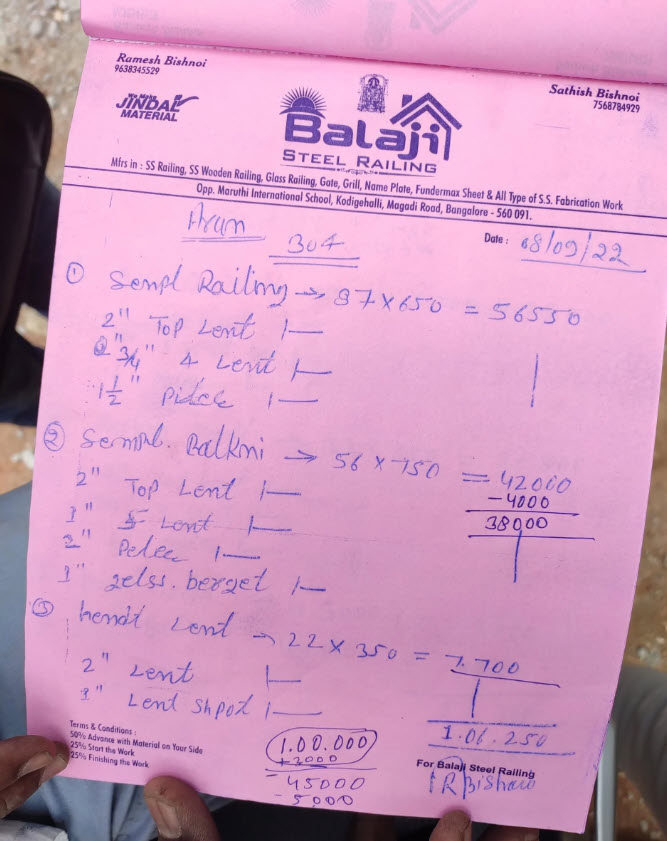 Ramesh Bishnoi
9638345529
We Make
JINDAL
MATERIAL
Sathish Bishnoi
7568784929
Balaji
STEEL RAILING
Mfrs in : SS Railing, SS Wooden Railing, Glass Railing, Gate, Grill, Name Plate, Fundermax Sheet & All Type of S.S. Fabrication Work
Opp. Maruthi International School, Kodigehalli, Magadi Road, Bangalore - 560 091.
Arun
304
Date : 08/09/22
① Sempl Railing → 87 x 650 = 56550
2" Top Lent
3/4" 4 Lent
1 1/2" Pidee
② Sempl. Balkni → 56 x 750 = 42000
- 4000
38000
2" Top Lent
1" 5 Lent
2" Pelee
1" gelss. berget
③ hendt Lent → 22 x 350 = 7.700
2" Lent
1" Lent Shpot
1.06.250
1.00.000
+2000
45000
- 5000
Terms & Conditions :
50% Advance with Material on Your Side
25% Start the Work
25% Finishing the Work
For Balaji Steel Railing